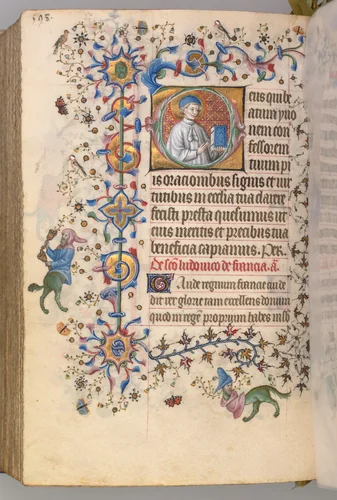 eus qui be
atum yuo
nem con
fessorem
tuum pi
is orationibus signis et vir
tutibus in ecclia tua clarere
fecisti presta quesumus ut
eius mentis et precibus tua
beneficia capiamus. Per.
De sco ludouico de francia. a.
Gaude regnum francie cui de
dit rex glorie tam excellens donum
quod in regem proprium habes in so